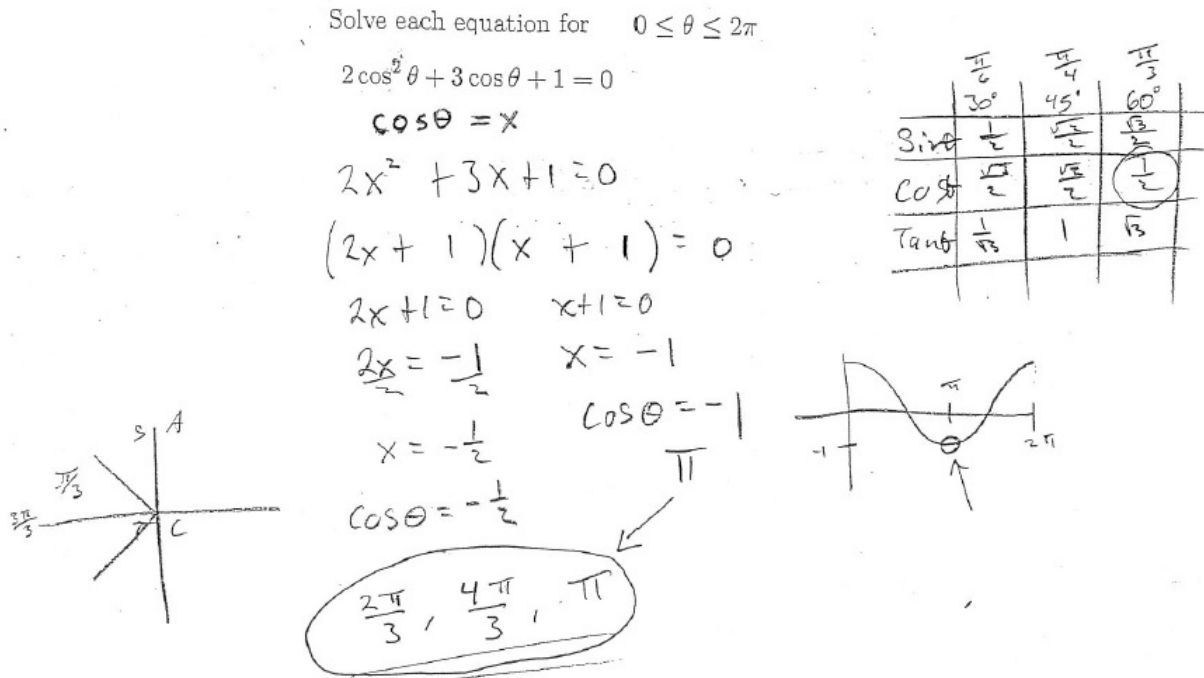 Solve each equation for 0 ≤ θ ≤ 2π
2 cos² θ + 3 cos θ + 1 = 0
cosθ = x
2x² + 3x + 1 = 0
(2x + 1)(x + 1) = 0
2x + 1 = 0 x + 1 = 0
2x/2 = -1/2 x = -1
x = -1/2 cosθ = -1
π
cosθ = -1/2
2π/3, 4π/3, π
π/6 π/4 π/3
30° 45° 60°
Sinθ 1/2 √2/2 √3/2
Cosθ √3/2 √2/2 1/2
Tanθ 1/√3 1 √3
π
-1 2π
S A
π/3
3π/3
T C